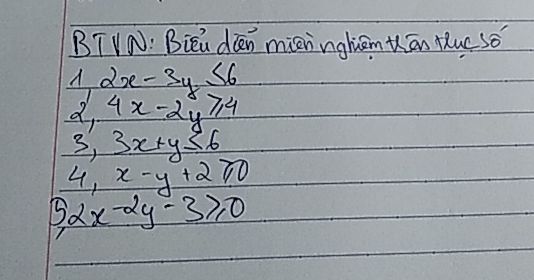 BTVN: Biểu diễn miền nghiệm trên trục số
1, 2x - 3y ≤ 6
2, 4x - 2y ≥ 4
3, 3x + y ≤ 6
4, x - y + 2 ≥ 0
5, 2x - 2y - 3 ≥ 0